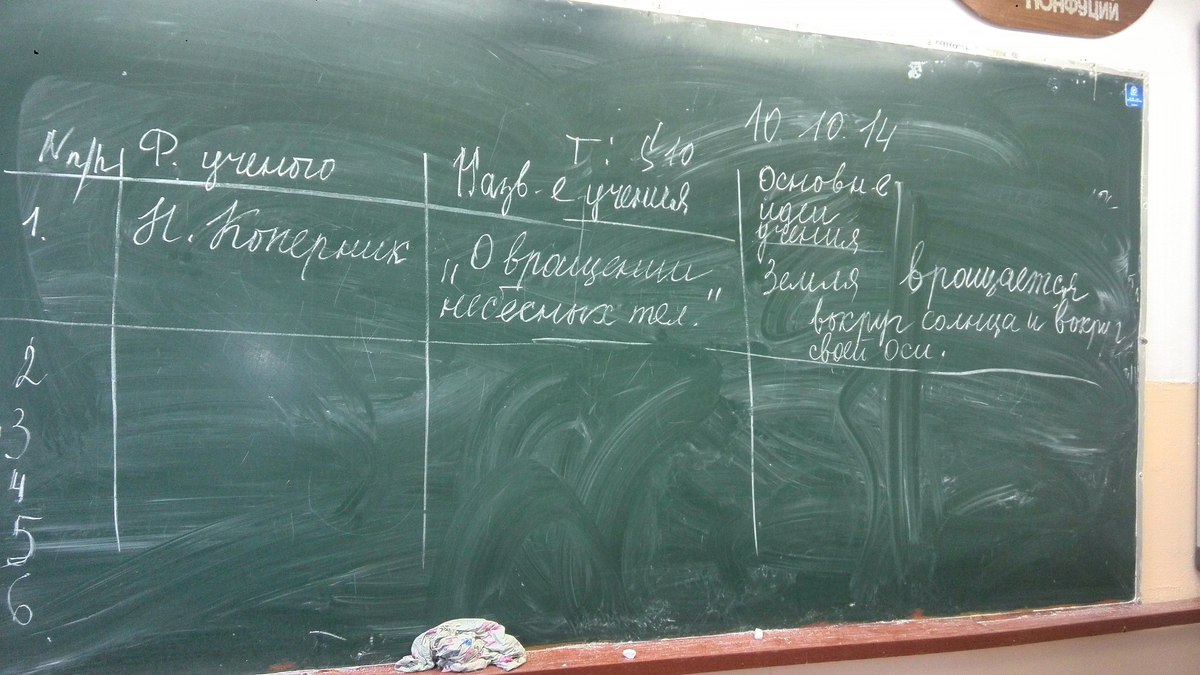 КОНФУЦИЙ
10.10.14
Т: §10
№ п/п
Ф. ученого
Назв-е учения
Основные
идеи
учения
1.
Н. Коперник
„О вращении
небесных тел."
Земля вращается
вокруг солнца и вокруг
своей оси.
2
3
4
5
6